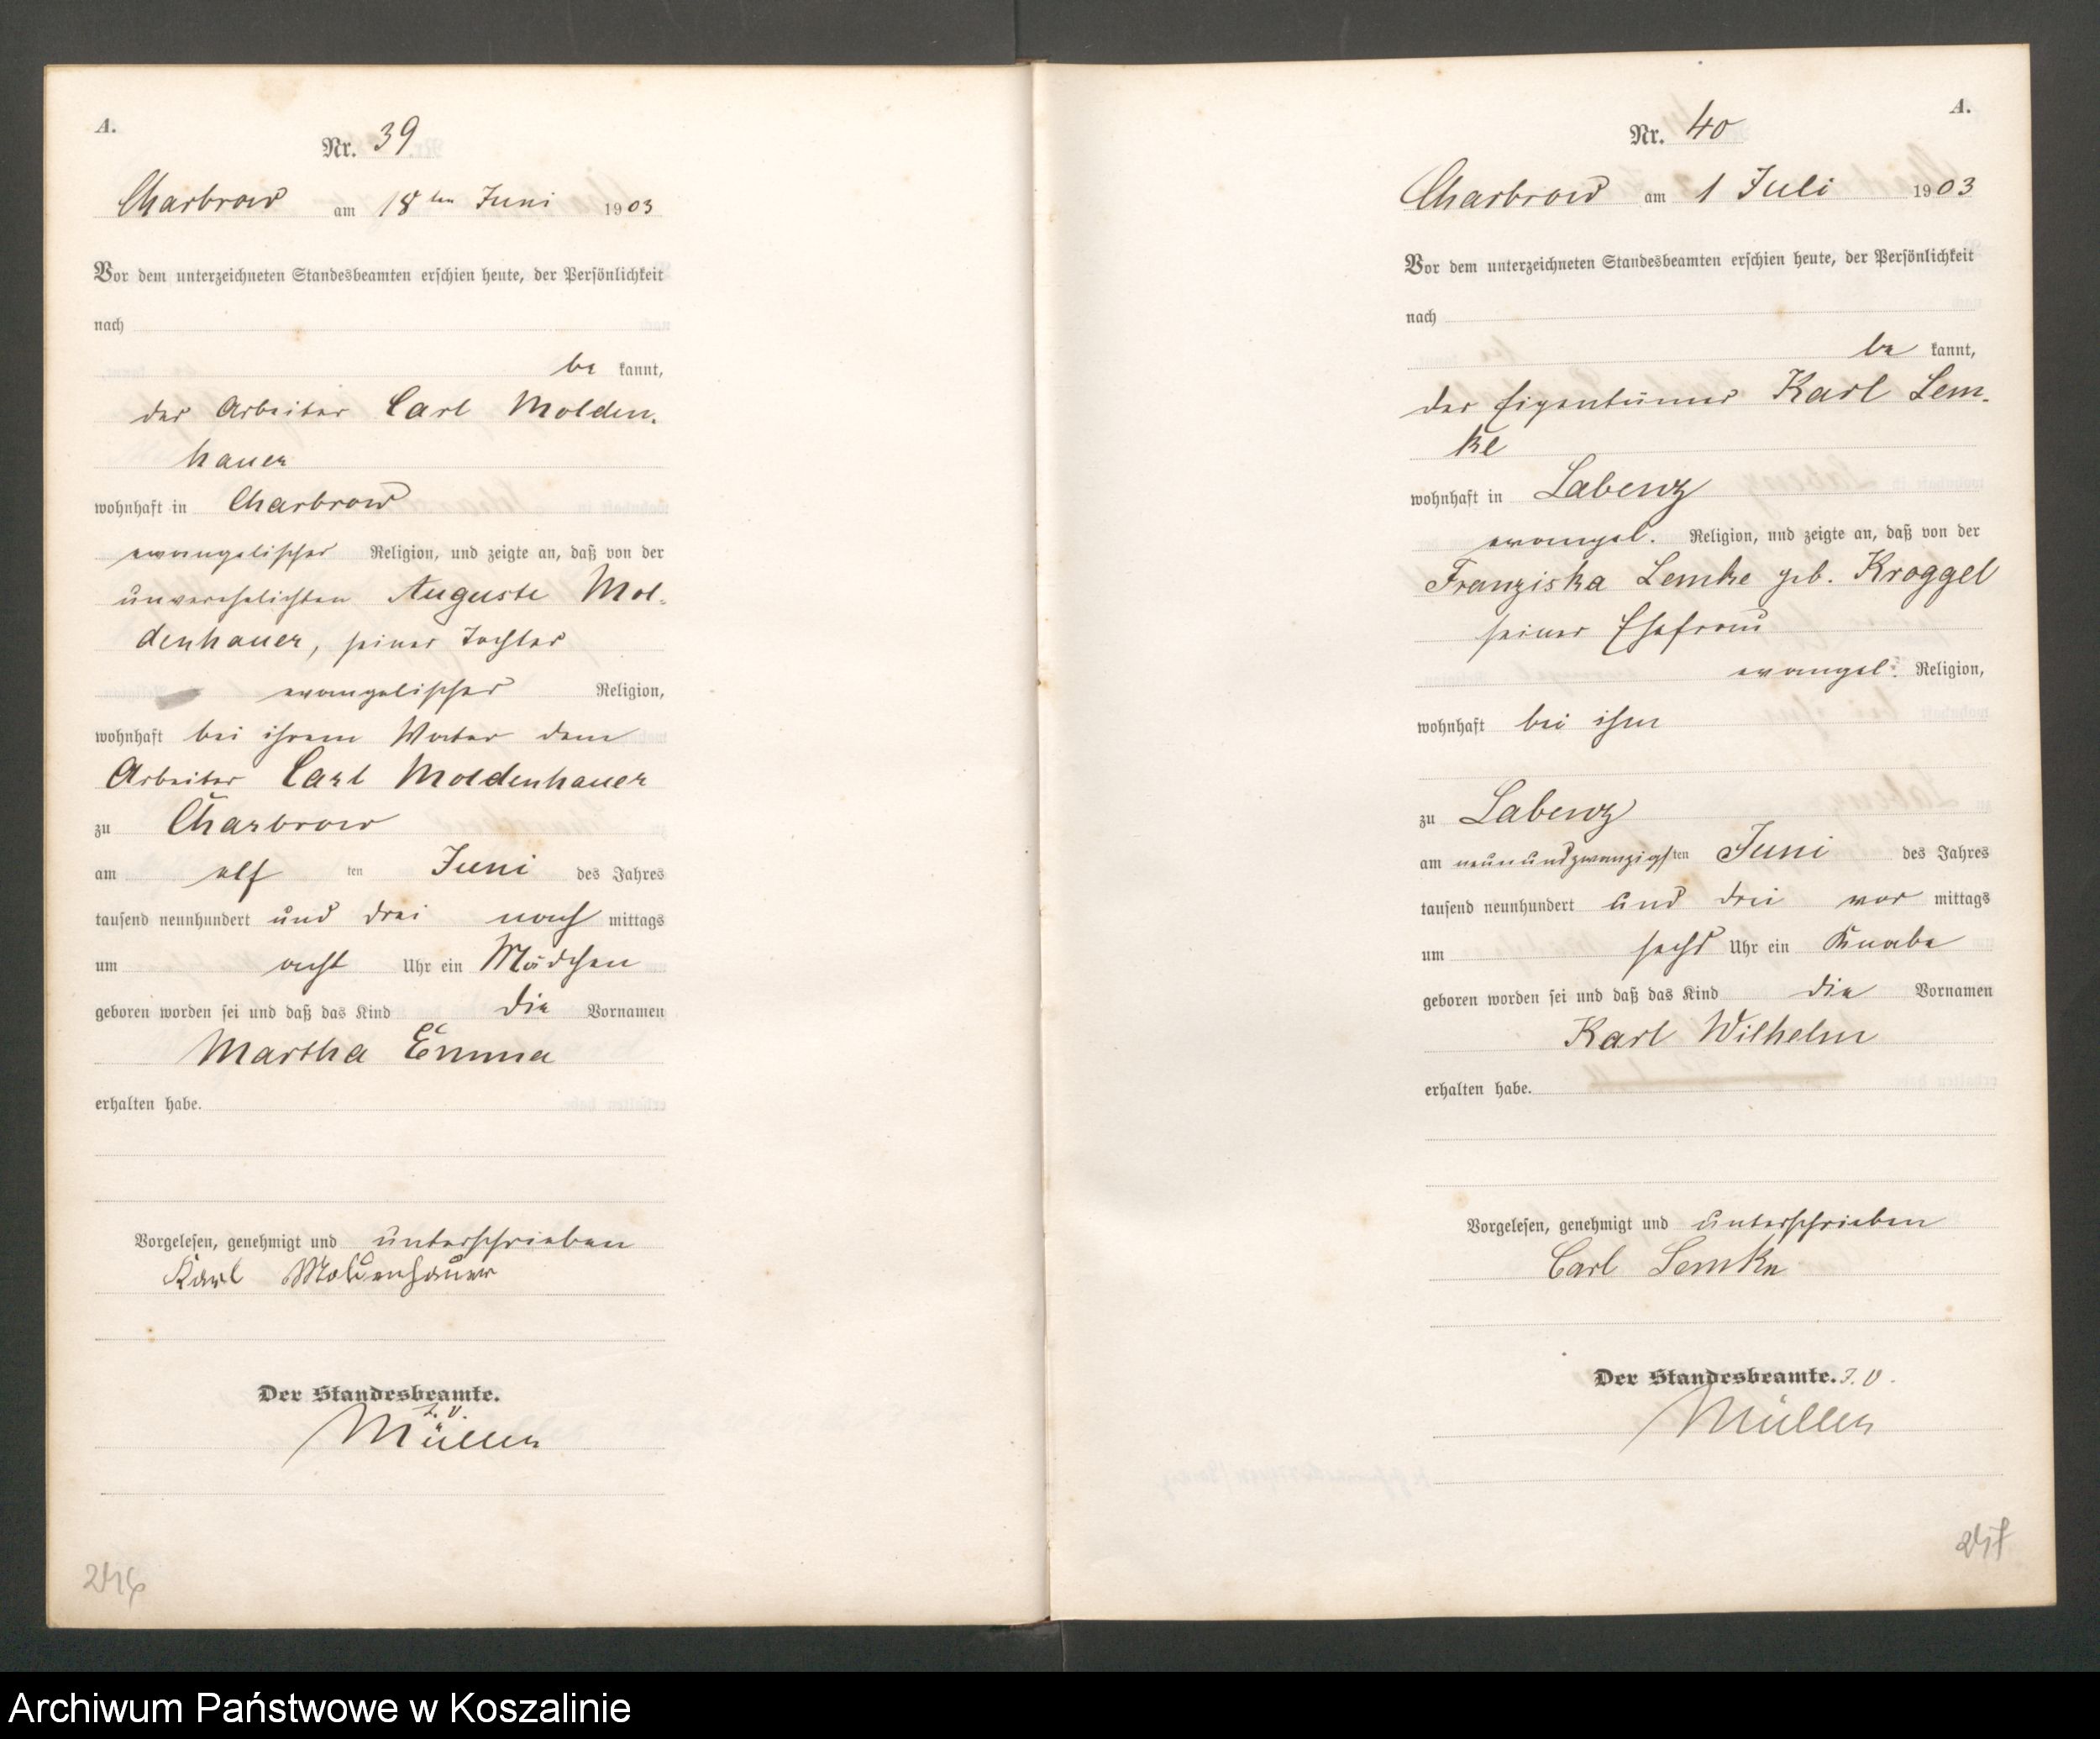 A.
Nr. 39
Charbrow am 18ten Juni 1903
Vor dem unterzeichneten Standesbeamten erschien heute, der Persönlichkeit
nach
be kannt,
der Arbeiter Carl Molden-
hauer
wohnhaft in Charbrow
evangelischer Religion, und zeigte an, daß von der
unverehelichten Auguste Mol-
denhauer, seiner Tochter
evangelischer Religion,
wohnhaft bei ihrem Vater dem
Arbeiter Carl Moldenhauer
zu Charbrow
am elf ten Juni des Jahres
tausend neunhundert und drei nach mittags
um acht Uhr ein Mädchen
geboren worden sei und daß das Kind die Vornamen
Martha Emma
erhalten habe.
Vorgelesen, genehmigt und unterschrieben
Karl Moldenhauer
Der Standesbeamte.
I. V.
Müller
246
A.
Nr. 40
Charbrow am 1 Juli 1903
Vor dem unterzeichneten Standesbeamten erschien heute, der Persönlichkeit
nach
be kannt,
der Eigentümer Karl Lem-
ke
wohnhaft in Labenz
evangel. Religion, und zeigte an, daß von der
Franziska Lemke geb. Kroggel
seiner Ehefrau
evangel. Religion,
wohnhaft bei ihm
zu Labenz
am neunundzwanzigsten Juni des Jahres
tausend neunhundert und drei vor mittags
um sechs Uhr ein Knabe
geboren worden sei und daß das Kind die Vornamen
Karl Wilhelm
erhalten habe.
Vorgelesen, genehmigt und unterschrieben
Carl Lemke
Der Standesbeamte. I. V.
Müller
Archiwum Państwowe w Koszalinie